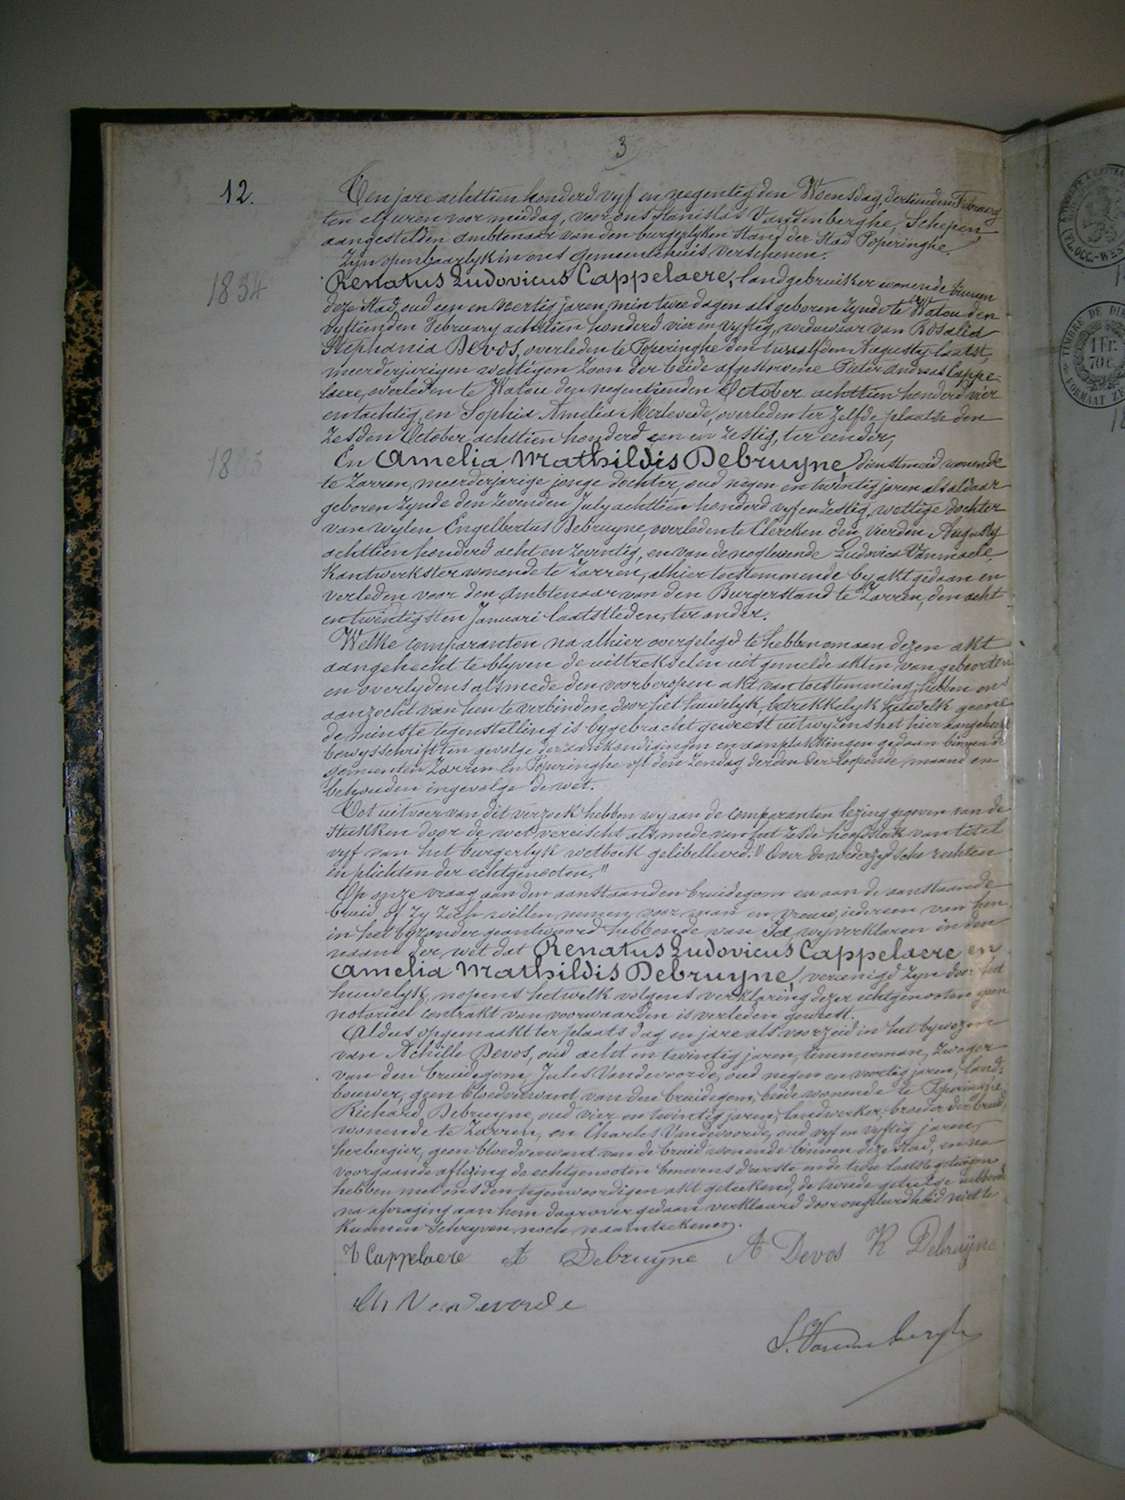 3
12.
Ten jare achttien honderd vyf en negentig den Woensdag, dertienden February
ten elf uren voor middag, voor ons Stanislas Vandenberghe, Schepen,
aangestelden ambtenaar van den burgerlyken Stand der Stad Poperinghe,
zyn openbaarlyk in ons gemeentehuis verschenen.
1834
Renatus Ludovicus Cappelaere, landgebruiker wonende binnen
deze Stad, oud een en veertig jaren, min twee dagen als geboren zynde te Watou den
vyftienden February achttien honderd vier en vyftig, weduwaar van Rosalia
Stephania Devos, overleden te Poperinghe den twaalfden Augusty laatst,
meerderjarigen wettigen Zoon der beide afgestorvene Pieter Andreas Cappe-
laere, overleden te Watou den negentienden October achttien honderd vier
en tachtig, en Sophia Amelia Merlevede, overleden ter zelfde plaatse den
zesden October achttien honderd een en zestig, ter eender,
En Amelia Mathildis Debruyne, dienstmeid, wonende
te Zarren, meerderjarige jonge dochter, oud negen en twintig jaren als aldaar
geboren zynde den zevenden July achttien honderd vyf en zestig, wettige dochter
van wylen Engelbertus Debruyne, overleden te Clercken den vierden Augusty
achttien honderd acht en zeventig, en van de noglevende Ludovica Vanmaele,
Kantwerkster wonende te Zarren, alhier toestemmende by akt gedaan en
verleden voor den Ambtenaar van den Burgerstand te Zarren, den acht
en twindigsten Januari laatstleden, ter ander.
Welke Comparanten na alhier overgelegd te hebben om aan dezen akt
aangehecht te blyven de uittrekselen uit gemelde akten van geboorten
en overlydens alsmede den voorberopen akt van toestemming, hebben ons
aanzocht van hen te verbinden door het huwelyk, betrekkelyk hetwelk geene
de minste tegenstelling is bygebracht geweest uitwyzens het hier aangehecht
bewysschrift ten gevolge der aankondigingen en aanplakkingen gedaan binnen de
gemeenten Zarren en Poperinghe op den Zondag derden der loopende maand en
behouden ingevolge de wet.
Tot uitvoer van dit verzoek hebben wy aan de Comparanten lezing gegeven van de
Stukken door de wet vereischt alsmede van het zesde hoofdstuk van titel
vyf van het burgerlyk wetboek gelibelleerd: "Over de wederzydsche rechten
en plichten der echtgenooten."
Op onze vraag aan den aanstaanden bruidegom en aan de aanstaande
bruid, of zy zich willen nemen voor man en vrouw, iedereen van hen
in het byzonder geantwoord hebbende van Ja, wy verklaren in den
naam der wet dat Renatus Ludovicus Cappelaere en
Amelia Mathildis Debruyne, vereenigd zyn door het
huwelyk, nopens hetwelk volgens verklaring dezer echtgenooten geen
notarieel contrakt van voorwaarden is verleden geweest.
Aldus opgemaakt ter plaats dag en jare als voorzeid in het bywezen
van Achille Devos, oud acht en twintig jaren, timmerman, Zwager
van den bruidegom, Jules Vandevoorde, oud negen en veertig jaren, land-
bouwer, geen bloedverwant van den bruidegom, beide wonende te Poperinghe,
Richard Debruyne, oud vier en twintig jaren, landwerker, broeder der bruid,
wonende te Zarren, en Charles Vandevoorde, oud vyf en vyftig jaren,
herbergier, geen bloedverwant van de bruid wonende binnen deze Stad, en na
voorgaande aflezing de echtgenooten benevens d'eerste en de twee laatste getuigen
hebben met ons den tegenwoordigen akt geteekend, de tweede getuige hebbende
na afvraging aan hem daarover gedaan verklaard door ongeleerdheid niet te
kunnen Schryven noch naamteekenen.
Cappelaere A Debruyne A Devos R Debruÿne
Ch Vandevoorde
S. Vandenberghe
TIMBRE DE DI
1 Fr.
70 c.
FORMAAT